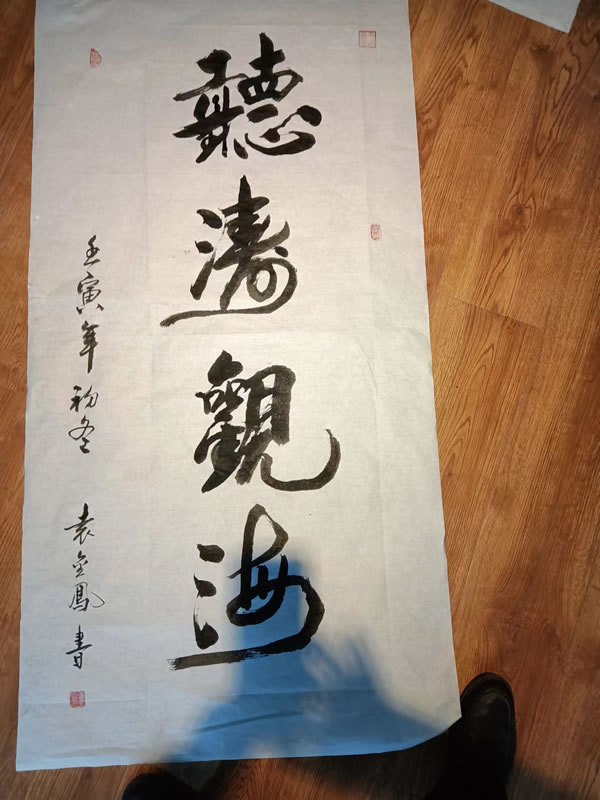 聽濤觀海
壬寅年初冬 袁金鳳書